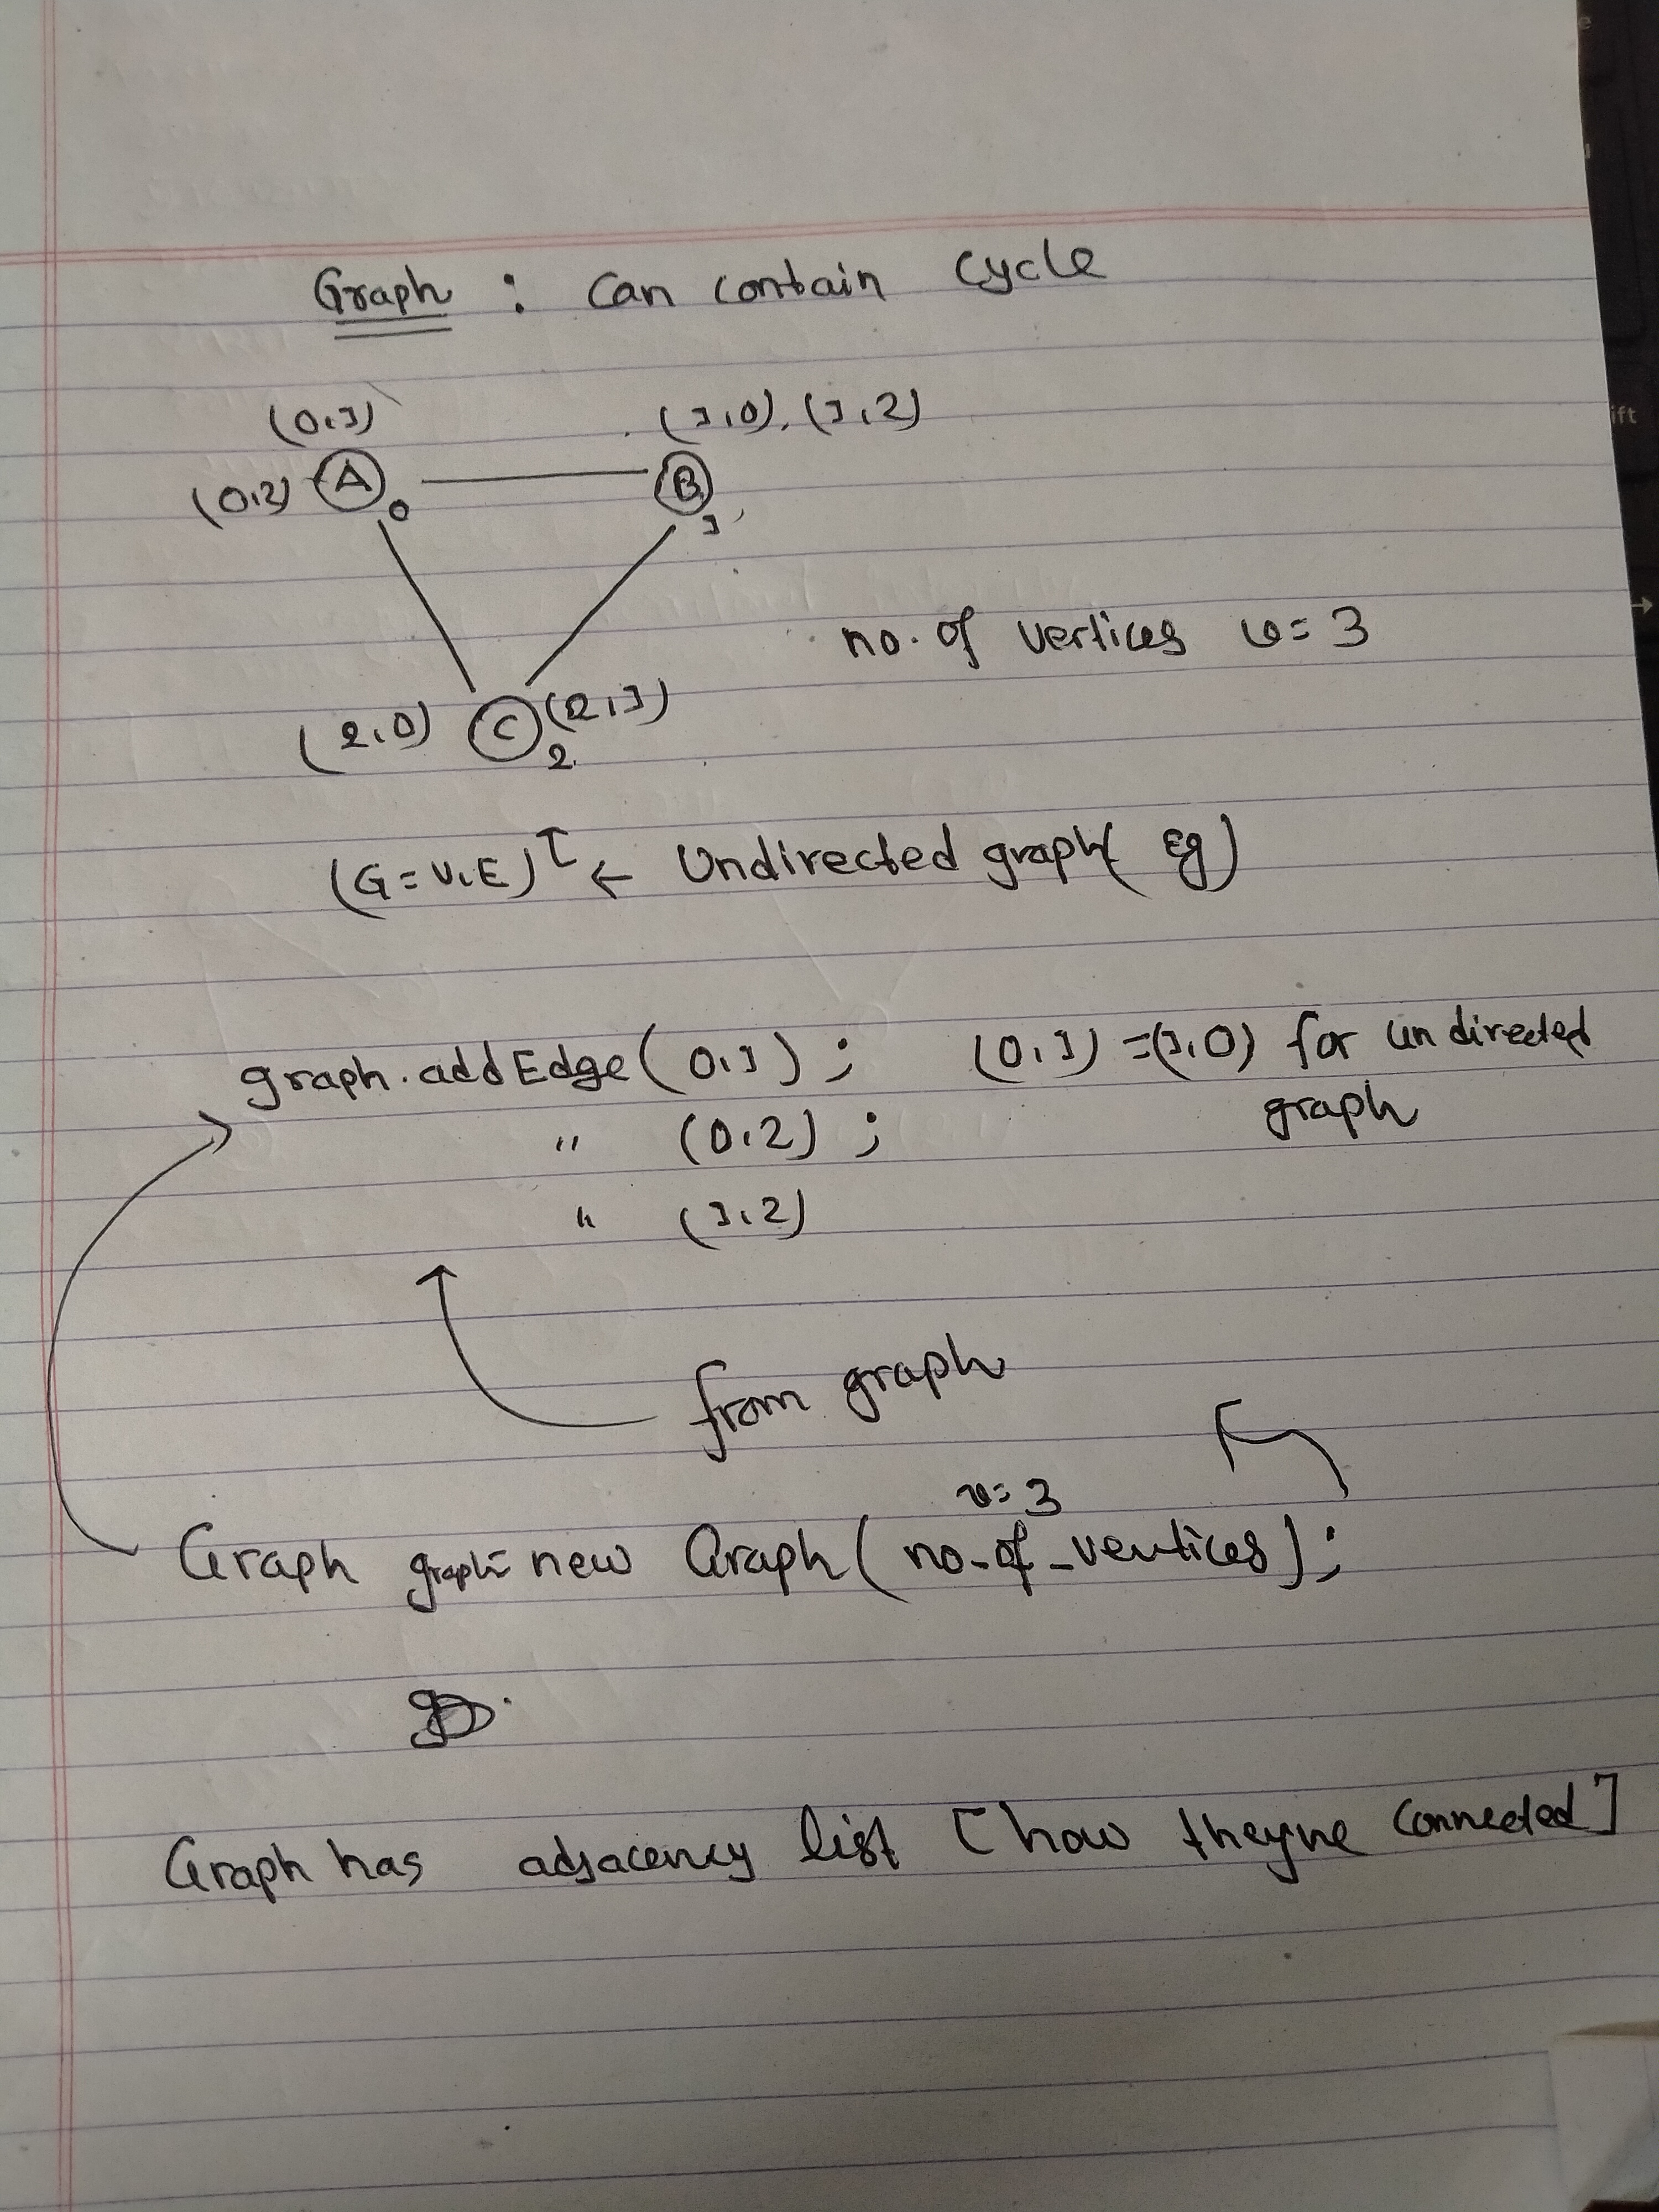 Graph : can contain cycle
(0,1) (1,0), (1,2)
(0,2) A 0 B 1
no. of vertices v = 3
(2,0) C 2 (2,1)
(G = V, E) ← Undirected graph (Eg)
graph.addEdge(0,1); (0,1) = (1,0) for undirected
graph
" (0,2);
" (1,2)
from graph
v = 3
Graph graph = new Graph(no_of_vertices);
Graph has adjacency list [how they're connected]